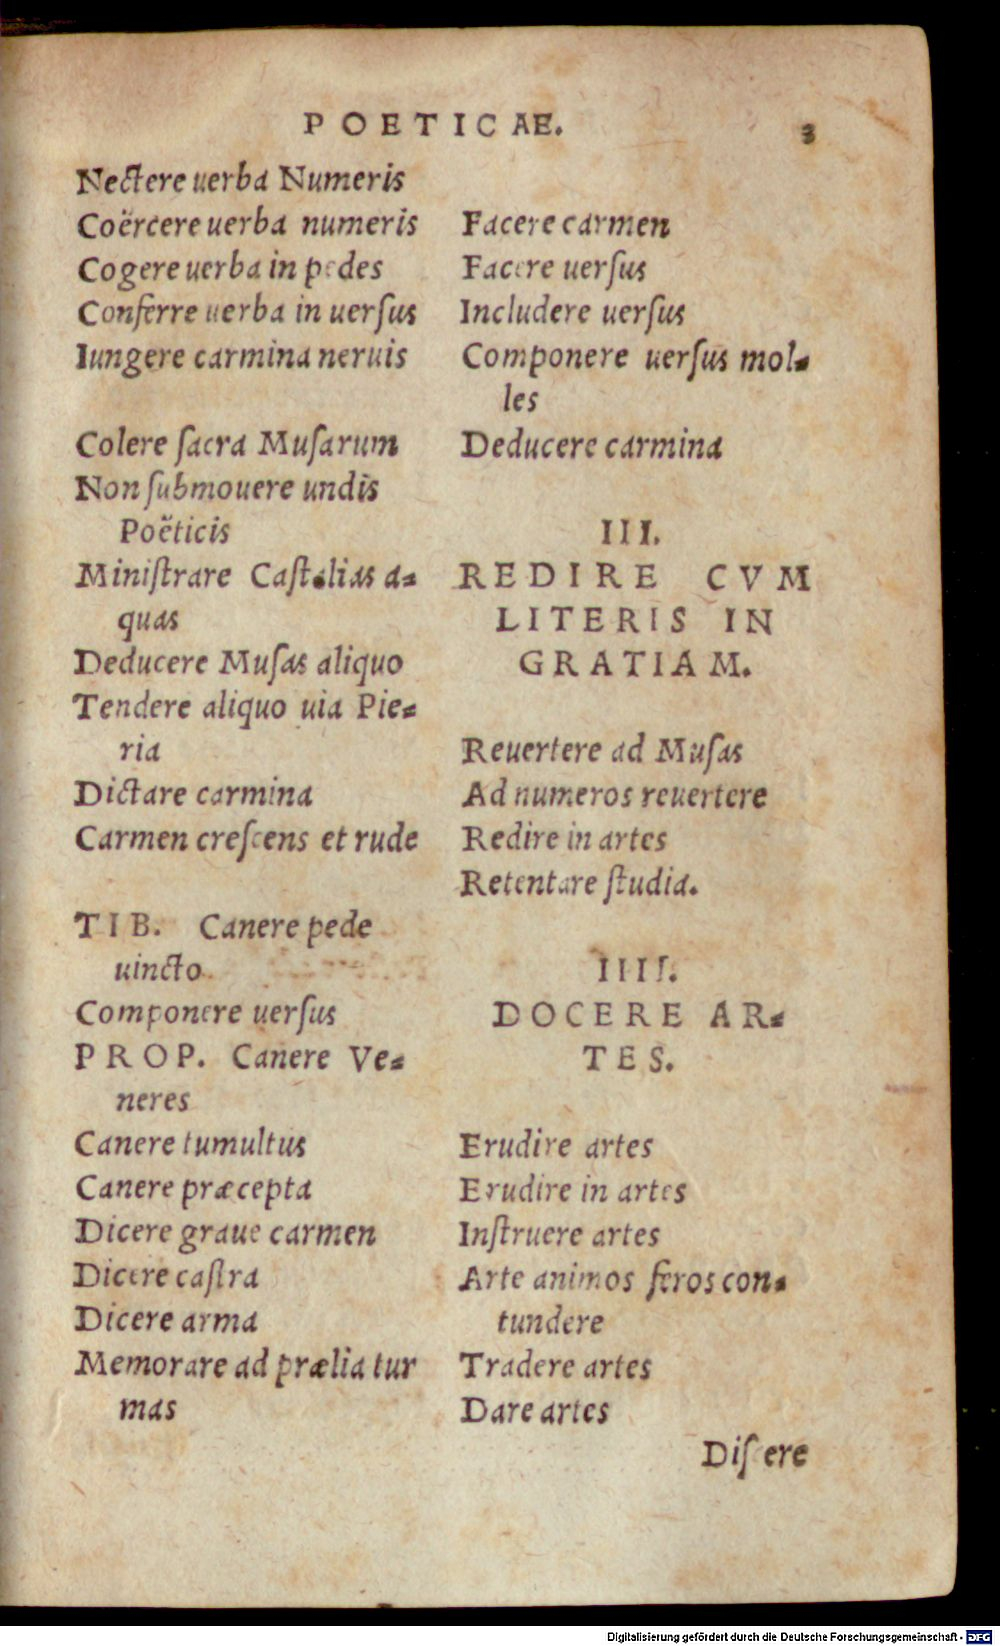 POETICAE. 3
Nectere uerba Numeris
Coërcere uerba numeris
Cogere uerba in pedes
Conferre uerba in uerſus
Iungere carmina neruis
Colere ſacra Muſarum
Non ſubmouere undis
Poëticis
Miniſtrare Caſtalias a-
quas
Deducere Muſas aliquo
Tendere aliquo uia Pie-
ria
Dictare carmina
Carmen creſcens et rude
TIB. Canere pede
uincto
Componere uerſus
PROP. Canere Ve-
neres
Canere tumultus
Canere præcepta
Dicere graue carmen
Dicere caſtra
Dicere arma
Memorare ad prælia tur
mas
Facere carmen
Facere uerſus
Includere uerſus
Componere uerſus mol-
les
Deducere carmina
III.
REDIRE CVM
LITERIS IN
GRATIAM.
Reuertere ad Muſas
Ad numeros reuertere
Redire in artes
Retentare ſtudia.
IIII.
DOCERE AR-
TES.
Erudire artes
Erudire in artes
Inſtruere artes
Arte animos feros con-
tundere
Tradere artes
Dare artes
Diſcere
Digitalisierung gefördert durch die Deutsche Forschungsgemeinschaft - DFG